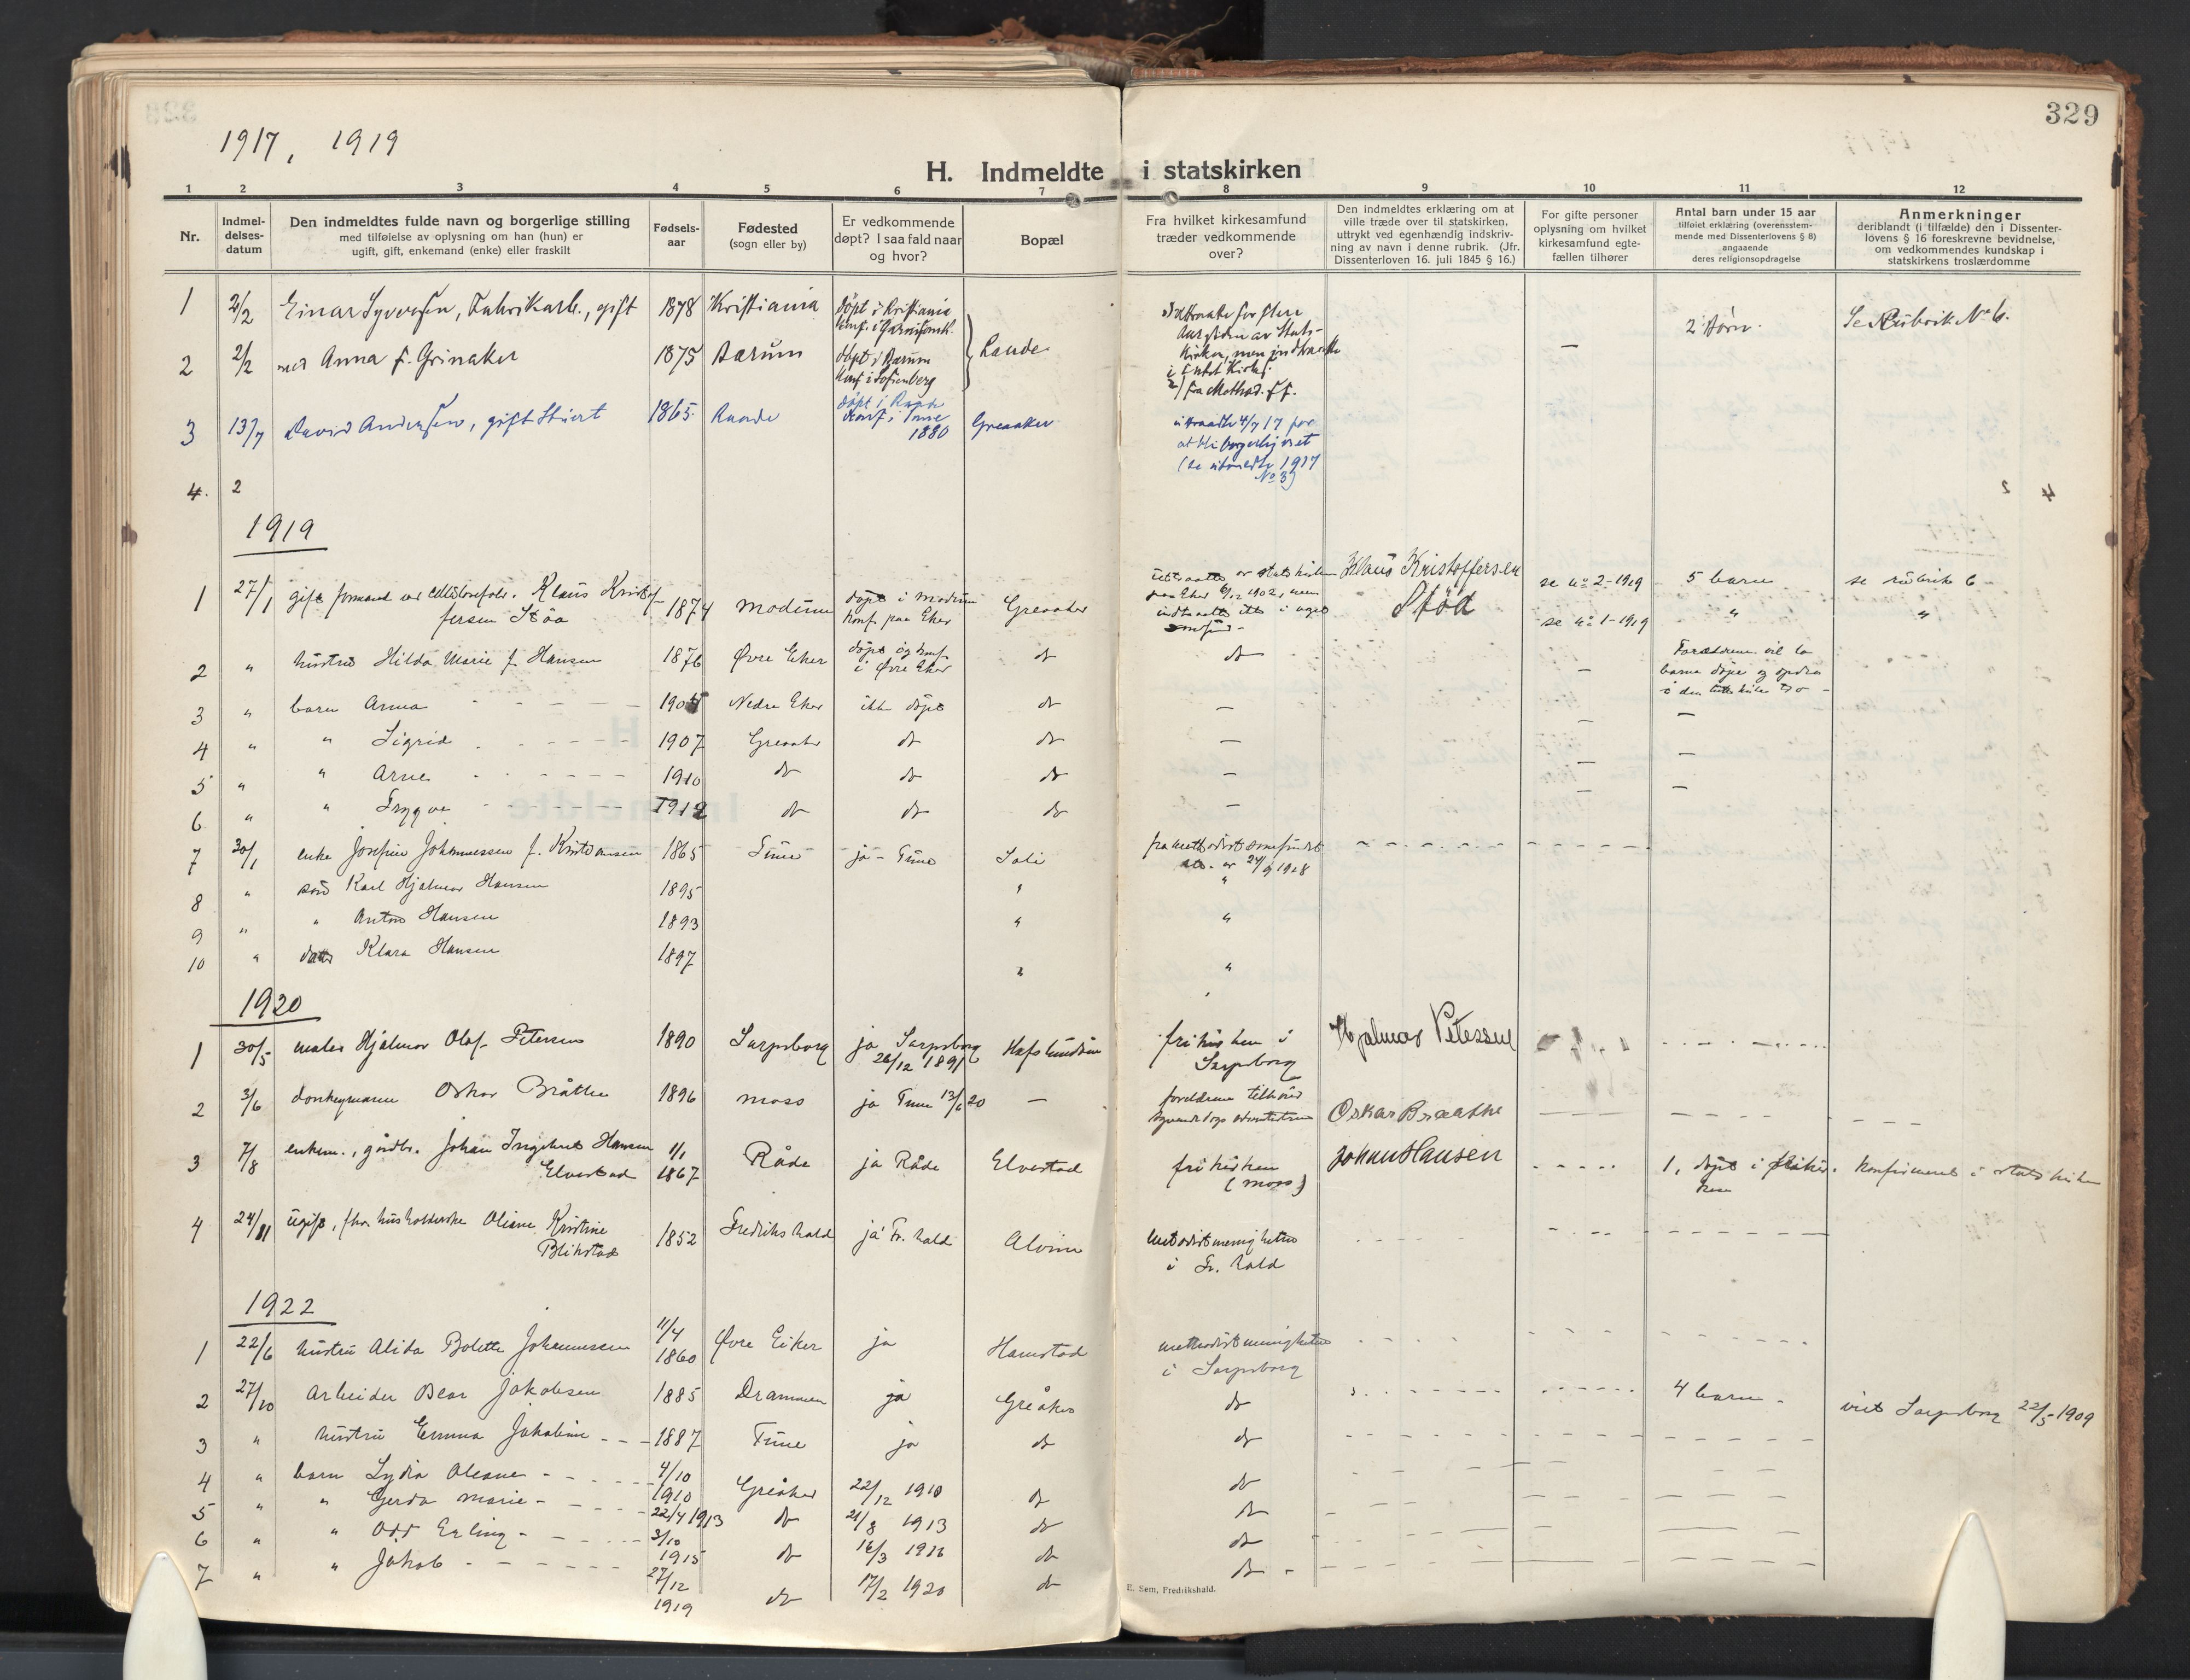 329
1917, 1919
H. Indmeldte i statskirken
1 2 3 4 5 6 7 8 9 10 11 12
Nr.
Indmel-
delses-
datum
Den indmeldtes fulde navn og borgerlige stilling
med tilføielse av oplysning om han (hun) er
ugift, gift, enkemand (enke) eller fraskilt
Fødsels-
aar
Fødested
(sogn eller by)
Er vedkommende
døpt? I saa fald naar
og hvor?
Bopæl
Fra hvilket kirkesamfund
træder vedkommende
over?
Den indmeldtes erklæring om at
ville træde over til statskirken,
uttrykt ved egenhændig indskriv-
ning av navn i denne rubrik. (Jfr.
Dissenterloven 16. juli 1845 § 16.)
For gifte personer
oplysning om hvilket
kirkesamfund egte-
fællen tilhører
Antal barn under 15 aar
tilføiet erklæring (overensstem-
mende med Dissenterlovens § 8)
angaaende
deres religionsopdragelse
Anmerkninger
deriblandt (i tilfælde) den i Dissenter-
lovens § 16 foreskrevne bevidnelse,
om vedkommendes kundskap i
statskirkens troslærdomme
1 2/2 Einar Syversen, Fabrikarb., gift 1878 Kristiania døpt i Kristiania
konf. i
Utraadte for flere
aar siden av Stats-
kirken, men indtraadte
i intet Kirkes.
2 Børn. Se Rubrik No 6.
2 2/2 med Anna f. Grinaker 1875 Bærum døpt i Bærum
konf i Sofienberg
Lande
2) fra Methad. ff. —
3 13/7 David Andersen, gift 1865 Raade døpt i Raade
Konf. i Tune
1880 Greaaker
utraadte 4/7 17 for
at bli borgerlig viet
(se utmeldte 1917
No 3)
4. 2
1919
1 27/1 gift formand ved Kristof-
fersen Støa 1874 Modum døpt i Modum
konf. paa Eker Greaaker
uttraadte av statskirken
paa Eker 1902, men
indtraadte ikke i noget
samfund -
Klaus Kristoffersen
Stöa
se no 2-1919 5 barn se rubrik 6 -
2 " hustru Hilda Marie f. Hansen 1876 Øvre Eker døpt og konf.
i Øvre Eker do do se no 1-1919 " "
Forældrene vil la
barna døpe og opdra
i den tro -
3 " barn Anna 1904 Nedre Eker ikke døpt do —
4 " " Sigrid 1907 Greaaker do do —
5 " " Arne 1910 do do do —
6 " " Trygve 1912 do do do —
7 30/1 enke Josefine Johannessen f. Kristiansen 1865 Tune ja - Tune Soli
fra methodistsamfundet
24/9 1918
8 " søn Karl Hjalmar Hansen 1895 " "
9 " " Anton Hansen 1893 " "
10 " datter Klara Hansen 1897 " "
1920
1 30/5 maler Hjalmar Olaf Petersen 1890 Sarpsborg ja Sarpsborg
26/12 1891 Hafslundsøen
frikirken i
Sarpsborg
Hjalmar Petersen
2 3/6 donkeymann Oskar Bråthen 1896 Moss ja Tune 13/6 20 —
foreldrene tilhører
syvendedags adventistene
Oskar Braathe
3 7/8 enkem., gårdbr. Johan Ingebret Hansen
Elvestad 1/1
1867 Råde ja Råde Elvestad
frikirken
(Moss)
Johan Hansen
1, døpt i frikir-
ken
Konfirmeret i statskirken
4 24/11 ugift, fhv. husholderske Oliane Kristine
Blikstad 1852 Fredrikshald ja Fr. hald Alvim
metodistmenigheten
i Fr. hald
1922
1 22/6 hustru Alida Bolette Johannessen 11/4
1860 Øvre Eiker ja Hamstad
methodistmenigheten
i Sarpsborg
2 27/10 arbeider Jakobsen 1885 Drammen ja Greåker do 4 barn - viet Sarpsborg 22/5-1909
3 " hustru Emma Jakobine 1887 Tune ja do do
4 " barn Lydia Oleane 4/10
1910 Greåker 22/12 1910 do do
5 " " Gerda Marie 22/4 1913 do 21/8 1913 do do
6 " " Odd Erling 3/10
1915 do 16/3 1916 do do
7 " " Jakob 27/12
1919 do 17/2 1920 do do
E. Sem, Fredrikshald.